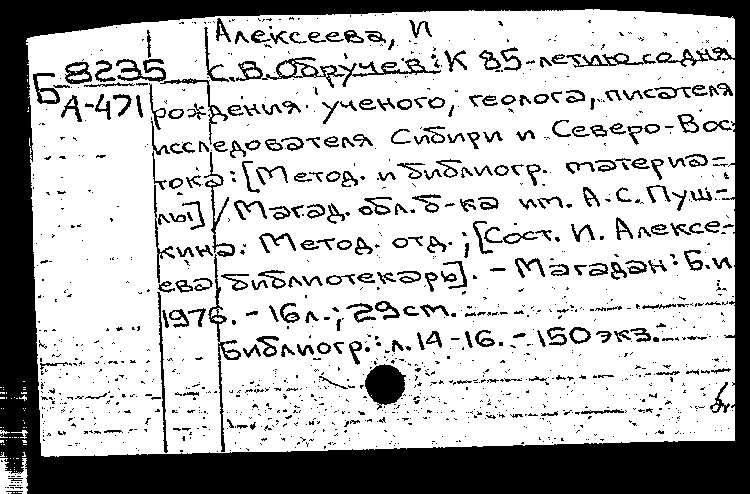 Алексеева, И
Б 8235
А-471
С.В. Обручев: К 85-летию со дня
рождения ученого, геолога, писателя
исследователя Сибири и Северо-Вос
тока: [Метод. и библиогр. материа-
лы] / Магад. обл. б-ка им. А.С. Пуш-
кина. Метод. отд.; [Сост. И. Алексе-
ева, библиотекарь]. - Магадан: Б.и
1976. - 16л.; 29см.
Библиогр.: л. 14-16. - 150 экз.